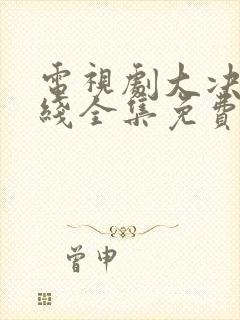 電視劇大决
綫全集免費
曾申